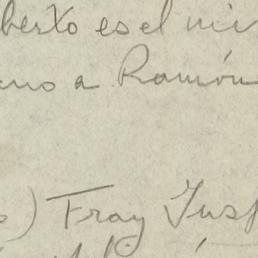 berto es el mi
ano a Ramón
) Fray Jusp